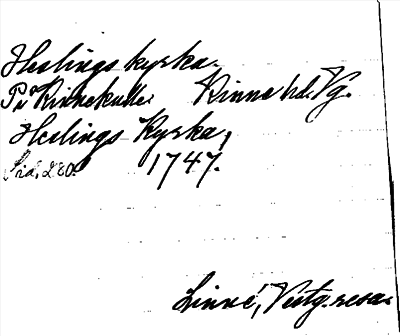 Hellings kyrka.
På Kinnekulle. Kinne hd. Vg.
Hellings Kyrka,
Sid. 280. 1747.
Linné, Vestg. resa.